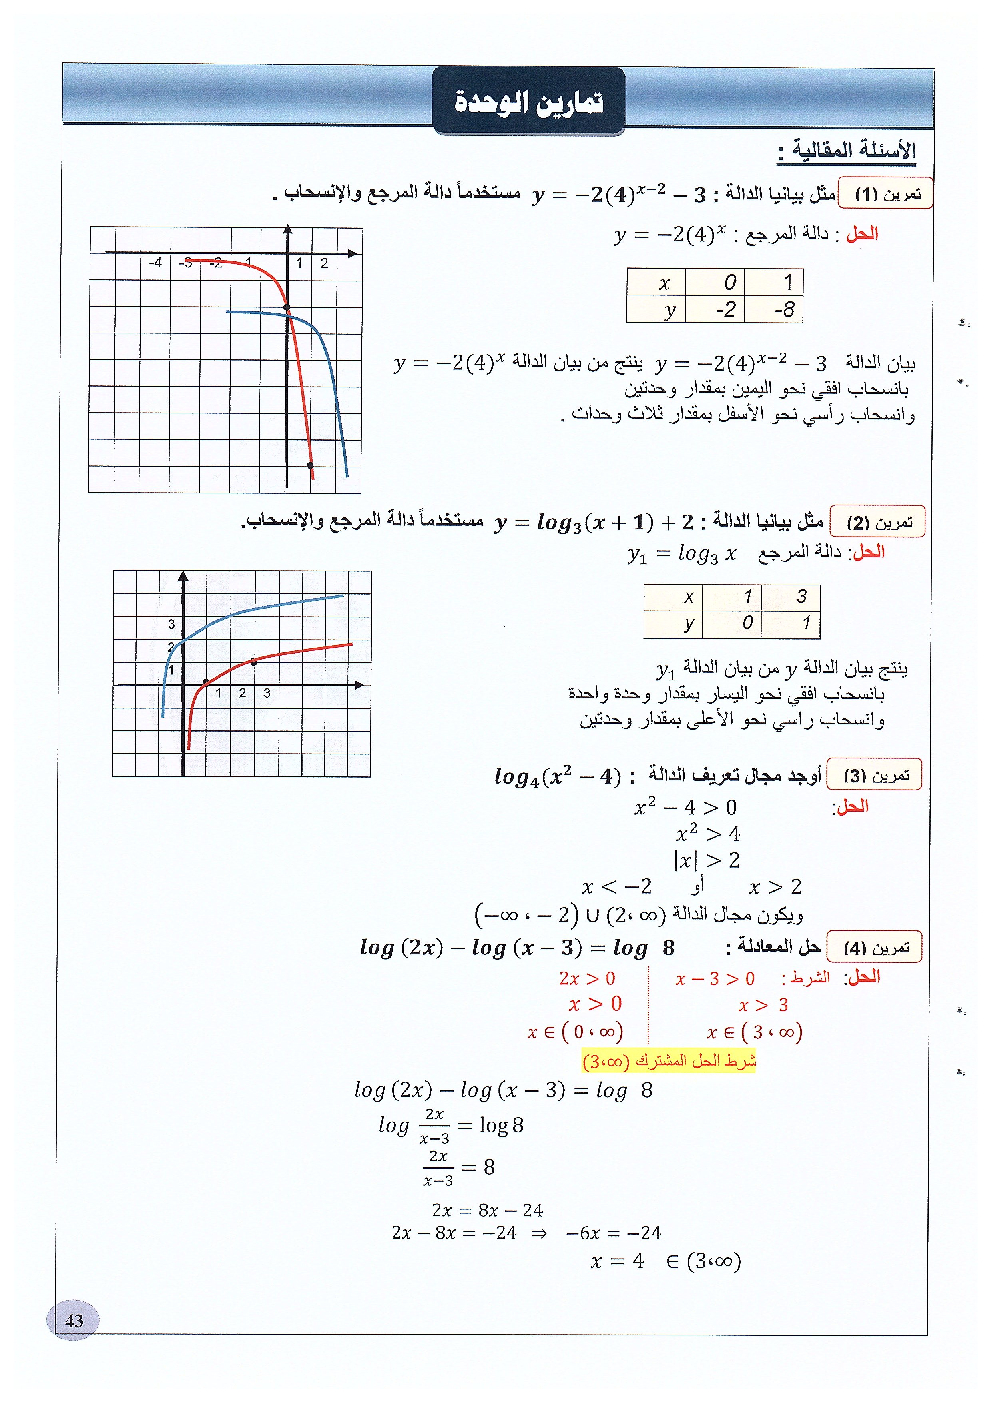 تمارين الوحدة
الأسئلة المقالية :
تمرين (1) مثل بيانيا الدالة : y = −2(4)^{x−2} − 3 مستخدماً دالة المرجع والإنسحاب .
الحل : دالة المرجع : y = −2(4)^x
x 0 1
y -2 -8
-4 -3 -2 -1 1 2
بيان الدالة y = −2(4)^{x−2} − 3 ينتج من بيان الدالة y = −2(4)^x
بانسحاب افقي نحو اليمين بمقدار وحدتين
وانسحاب رأسي نحو الأسفل بمقدار ثلاث وحدات .
تمرين (2) مثل بيانيا الدالة : y = log₃(x + 1) + 2 مستخدماً دالة المرجع والإنسحاب.
الحل: دالة المرجع y₁ = log₃ x
x 1 3
y 0 1
3
2
1
1 2 3
ينتج بيان الدالة y من بيان الدالة y₁
بانسحاب افقي نحو اليسار بمقدار وحدة واحدة
وانسحاب راسي نحو الأعلى بمقدار وحدتين
تمرين (3) أوجد مجال تعريف الدالة : log₄(x² − 4)
الحل: x² − 4 > 0
x² > 4
|x| > 2
x < −2 أو x > 2
ويكون مجال الدالة (−∞ ، − 2) ∪ (2، ∞)
تمرين (4) حل المعادلة : log (2x) − log (x − 3) = log 8
الحل: الشرط : x − 3 > 0 2x > 0
x > 3 x > 0
x ∈ ( 3 ، ∞) x ∈ ( 0 ، ∞)
شرط الحل المشترك (3،∞)
log (2x) − log (x − 3) = log 8
log 2x/x−3 = log 8
2x/x−3 = 8
2x = 8x − 24
2x − 8x = −24 ⇒ −6x = −24
x = 4 ∈ (3،∞)
43